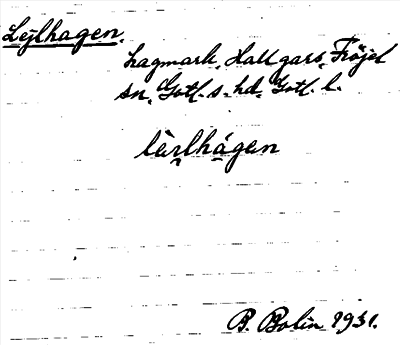 Lejlhagen.
hagmark, Hallgars, Fröjel
sn, Gotl. s. hd, Gotl. l.
lärlhágen
B. Bolin 1931.